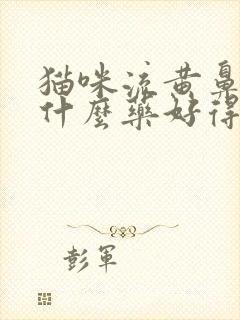 猫咪流黄鼻
什麼藥好得
彭军